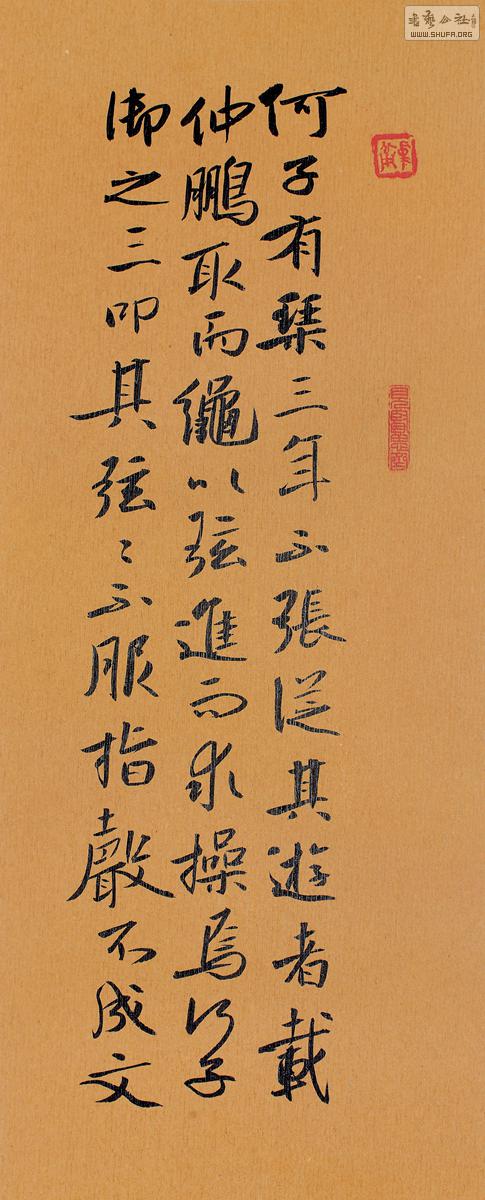 何子有琹三年不張從其遊者載
仲鵬取而繩以弦進而求操焉何子
御之三叩其弦〻不服指聲不成文
書藝公社
WWW.SHUFA.ORG